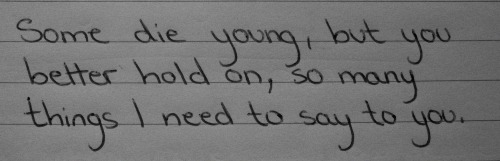 Some die young, but you
better hold on, so many
things I need to say to you.